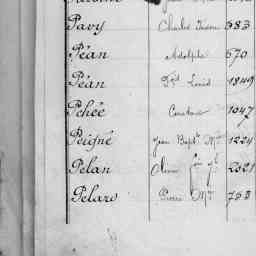 Pavy Charles 383
Péan Adolphe 670
Péan Louis 1849
Pehée Constant 1047
Peigné Jean Bapt. Mie 1224
Pelan Olivier 2321
Pelard Pierre Mie 753